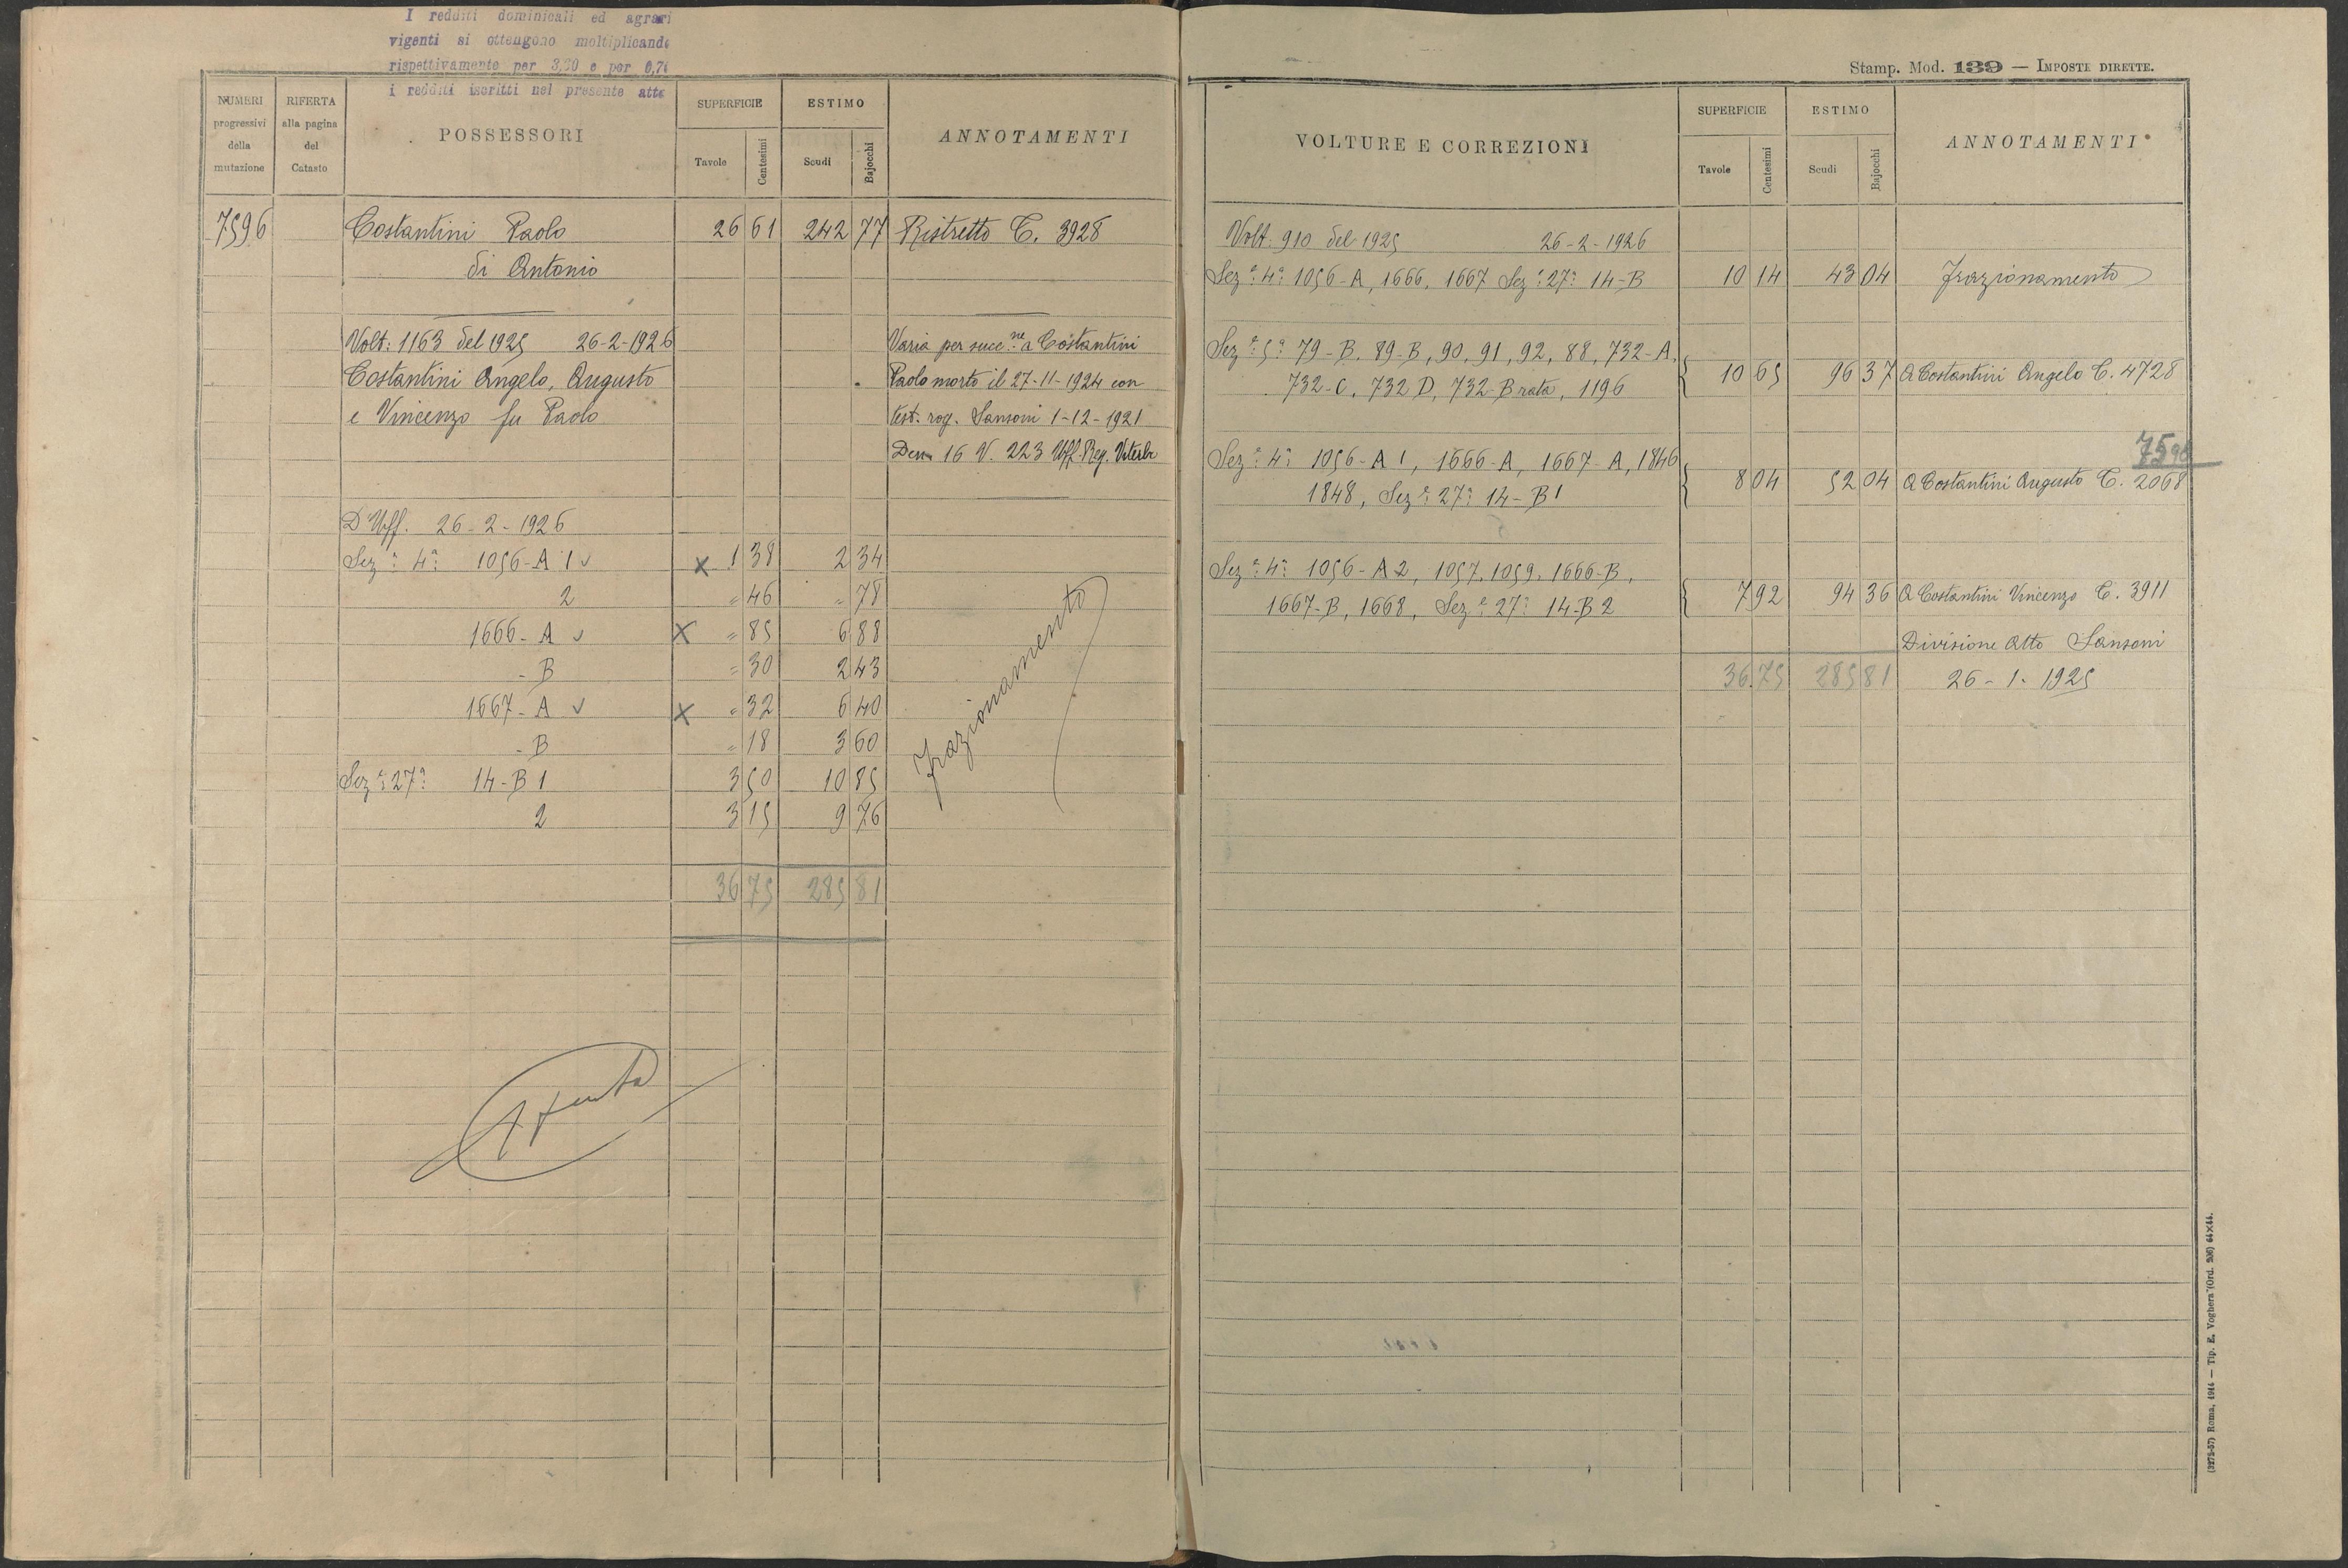 I redditi dominicali ed agrari
vigenti si ottengono moltiplicando
rispettivamente per 3,30 e per 0,70
i redditi iscritti nel presente atto
NUMERI progressivi della mutazione
RIFERTA alla pagina del Catasto
POSSESSORI
SUPERFICIE
Tavole Centesimi
ESTIMO
Scudi Bajocchi
ANNOTAMENTI
7596 Costantini Paolo 26 61 242 77 Ristretto C. 3928
di Antonio
Volt: 1163 del 1925 26-2-1926 Varia per succ.ne a Costantini
Costantini Angelo, Augusto Paolo morto il 27-11-1924 con
e Vincenzo fu Paolo test. rog. Sansoni 1-12-1921
Den 16 V. 223 Uff. Reg. Viterbo
D'Uff. 26-2-1926
Sez.e 4a 1056-A 1 1 38 2 34
2 " 46 " 78
1666-A " 85 6 88
-B " 30 2 43
1667-A " 32 6 40
-B " 18 3 60
Sez.e 27a 14-B 1 3 50 10 85
2 3 15 9 76
Frazionamento
36 75 285 81
Stamp. Mod. 139 — IMPOSTE DIRETTE.
VOLTURE E CORREZIONI
SUPERFICIE
Tavole Centesimi
ESTIMO
Scudi Bajocchi
ANNOTAMENTI
Volt. 910 del 1925 26-2-1926
Sez.e 4a 1056-A, 1666, 1667 Sez.e 27a 14-B 10 14 43 04 Frazionamento
Sez.e 5a 79-B, 89-B, 90, 91, 92, 88, 732-A,
732-C, 732 D, 732-B rata, 1196 10 65 96 37 A Costantini Angelo C. 4728
Sez.e 4a 1056-A 1, 1666-A, 1667-A, 1846
1848, Sez.e 27a 14-B 1 8 04 52 04 A Costantini Augusto C. 2068
Sez.e 4a 1056-A 2, 1057, 1059, 1666-B,
1667-B, 1668, Sez.e 27a 14-B 2 7 92 94 36 A Costantini Vincenzo C. 3911
Divisione Atto Sansoni
36 75 285 81 26-1-1925
(3275-57) Roma, 1914 — Tip. E. Voghera (Ord. 206) 64×44.